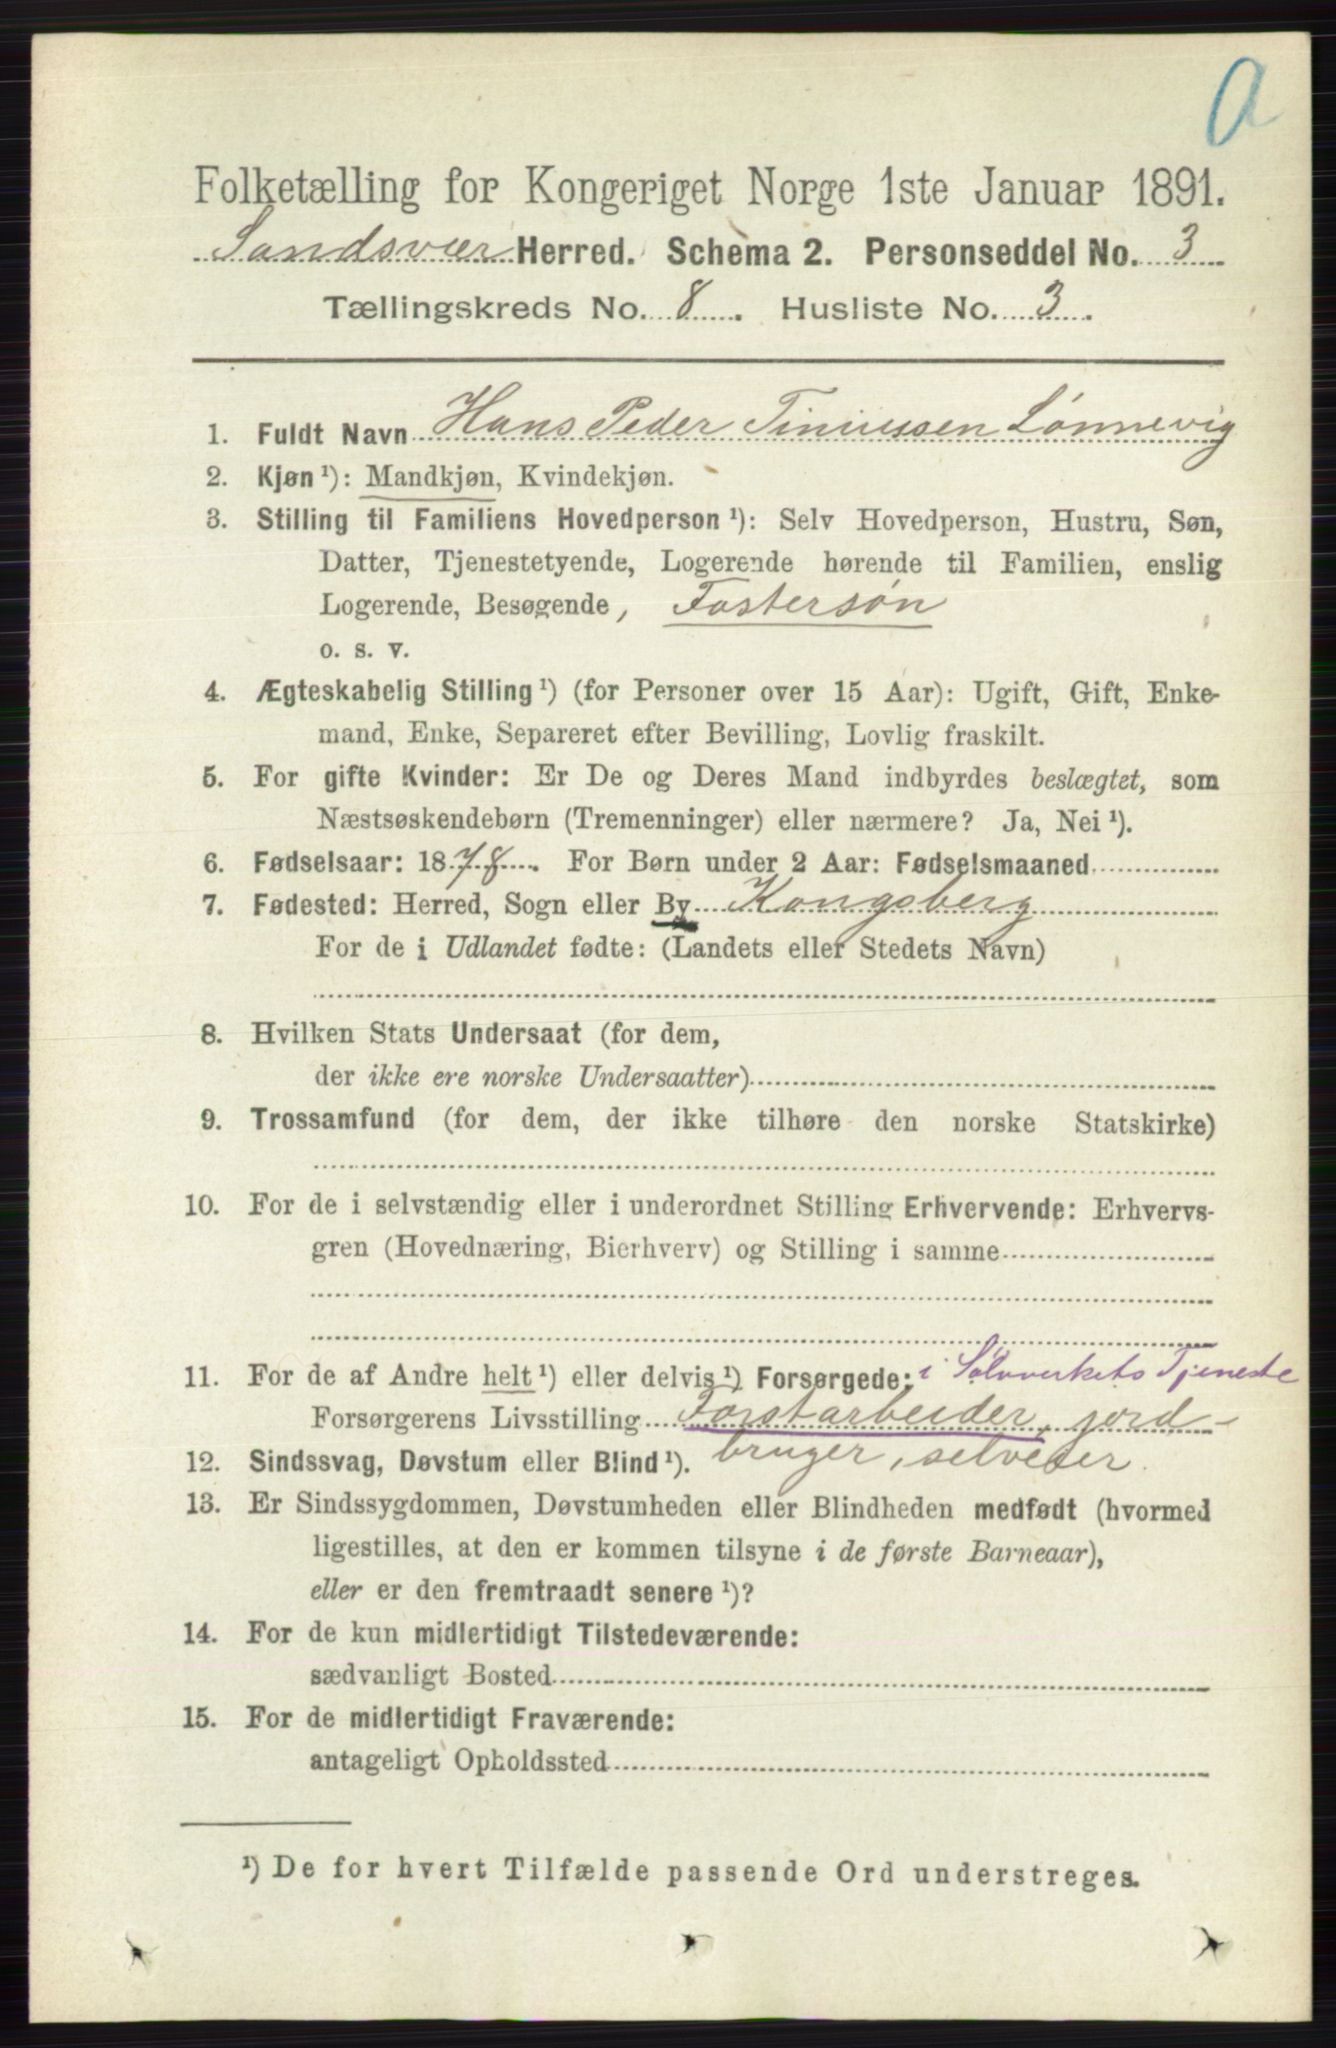 a
Folketælling for Kongeriget Norge 1ste Januar 1891.
Sandsvær Herred. Schema 2. Personseddel No. 3
Tællingskreds No. 8. Husliste No. 3.
1. Fuldt Navn Hans Peder Lønnevig
2. Kjøn ¹): Mandkjøn, Kvindekjøn.
3. Stilling til Familiens Hovedperson ¹): Selv Hovedperson, Hustru, Søn,
Datter, Tjenestetyende, Logerende hørende til Familien, enslig
Logerende, Besøgende, Fostersøn
o. s. v.
4. Ægteskabelig Stilling ¹) (for Personer over 15 Aar): Ugift, Gift, Enke-
mand, Enke, Separeret efter Bevilling, Lovlig fraskilt.
5. For gifte Kvinder: Er De og Deres Mand indbyrdes beslægtet, som
Næstsøskendebørn (Tremenninger) eller nærmere? Ja, Nei ¹).
6. Fødselsaar: 1878. For Børn under 2 Aar: Fødselsmaaned
7. Fødested: Herred, Sogn eller By Kongsberg
For de i Udlandet fødte: (Landets eller Stedets Navn)
8. Hvilken Stats Undersaat (for dem,
der ikke ere norske Undersaatter)
9. Trossamfund (for dem, der ikke tilhøre den norske Statskirke)
10. For de i selvstændig eller i underordnet Stilling Erhvervende: Erhvervs-
gren (Hovednæring, Bierhverv) og Stilling i samme
11. For de af Andre helt ¹) eller delvis ¹) Forsørgede: i Sølvverkets Tjeneste
Forsørgerens Livsstilling Forstarbeider, jord-
12. Sindssvag, Døvstum eller Blind ¹). bruger, selveier.
13. Er Sindssygdommen, Døvstumheden eller Blindheden medfødt (hvormed
ligestilles, at den er kommen tilsyne i de første Barneaar),
eller er den fremtraadt senere ¹)?
14. For de kun midlertidigt Tilstedeværende:
sædvanligt Bosted
15. For de midlertidigt Fraværende:
antageligt Opholdssted
¹) De for hvert Tilfælde passende Ord understreges.